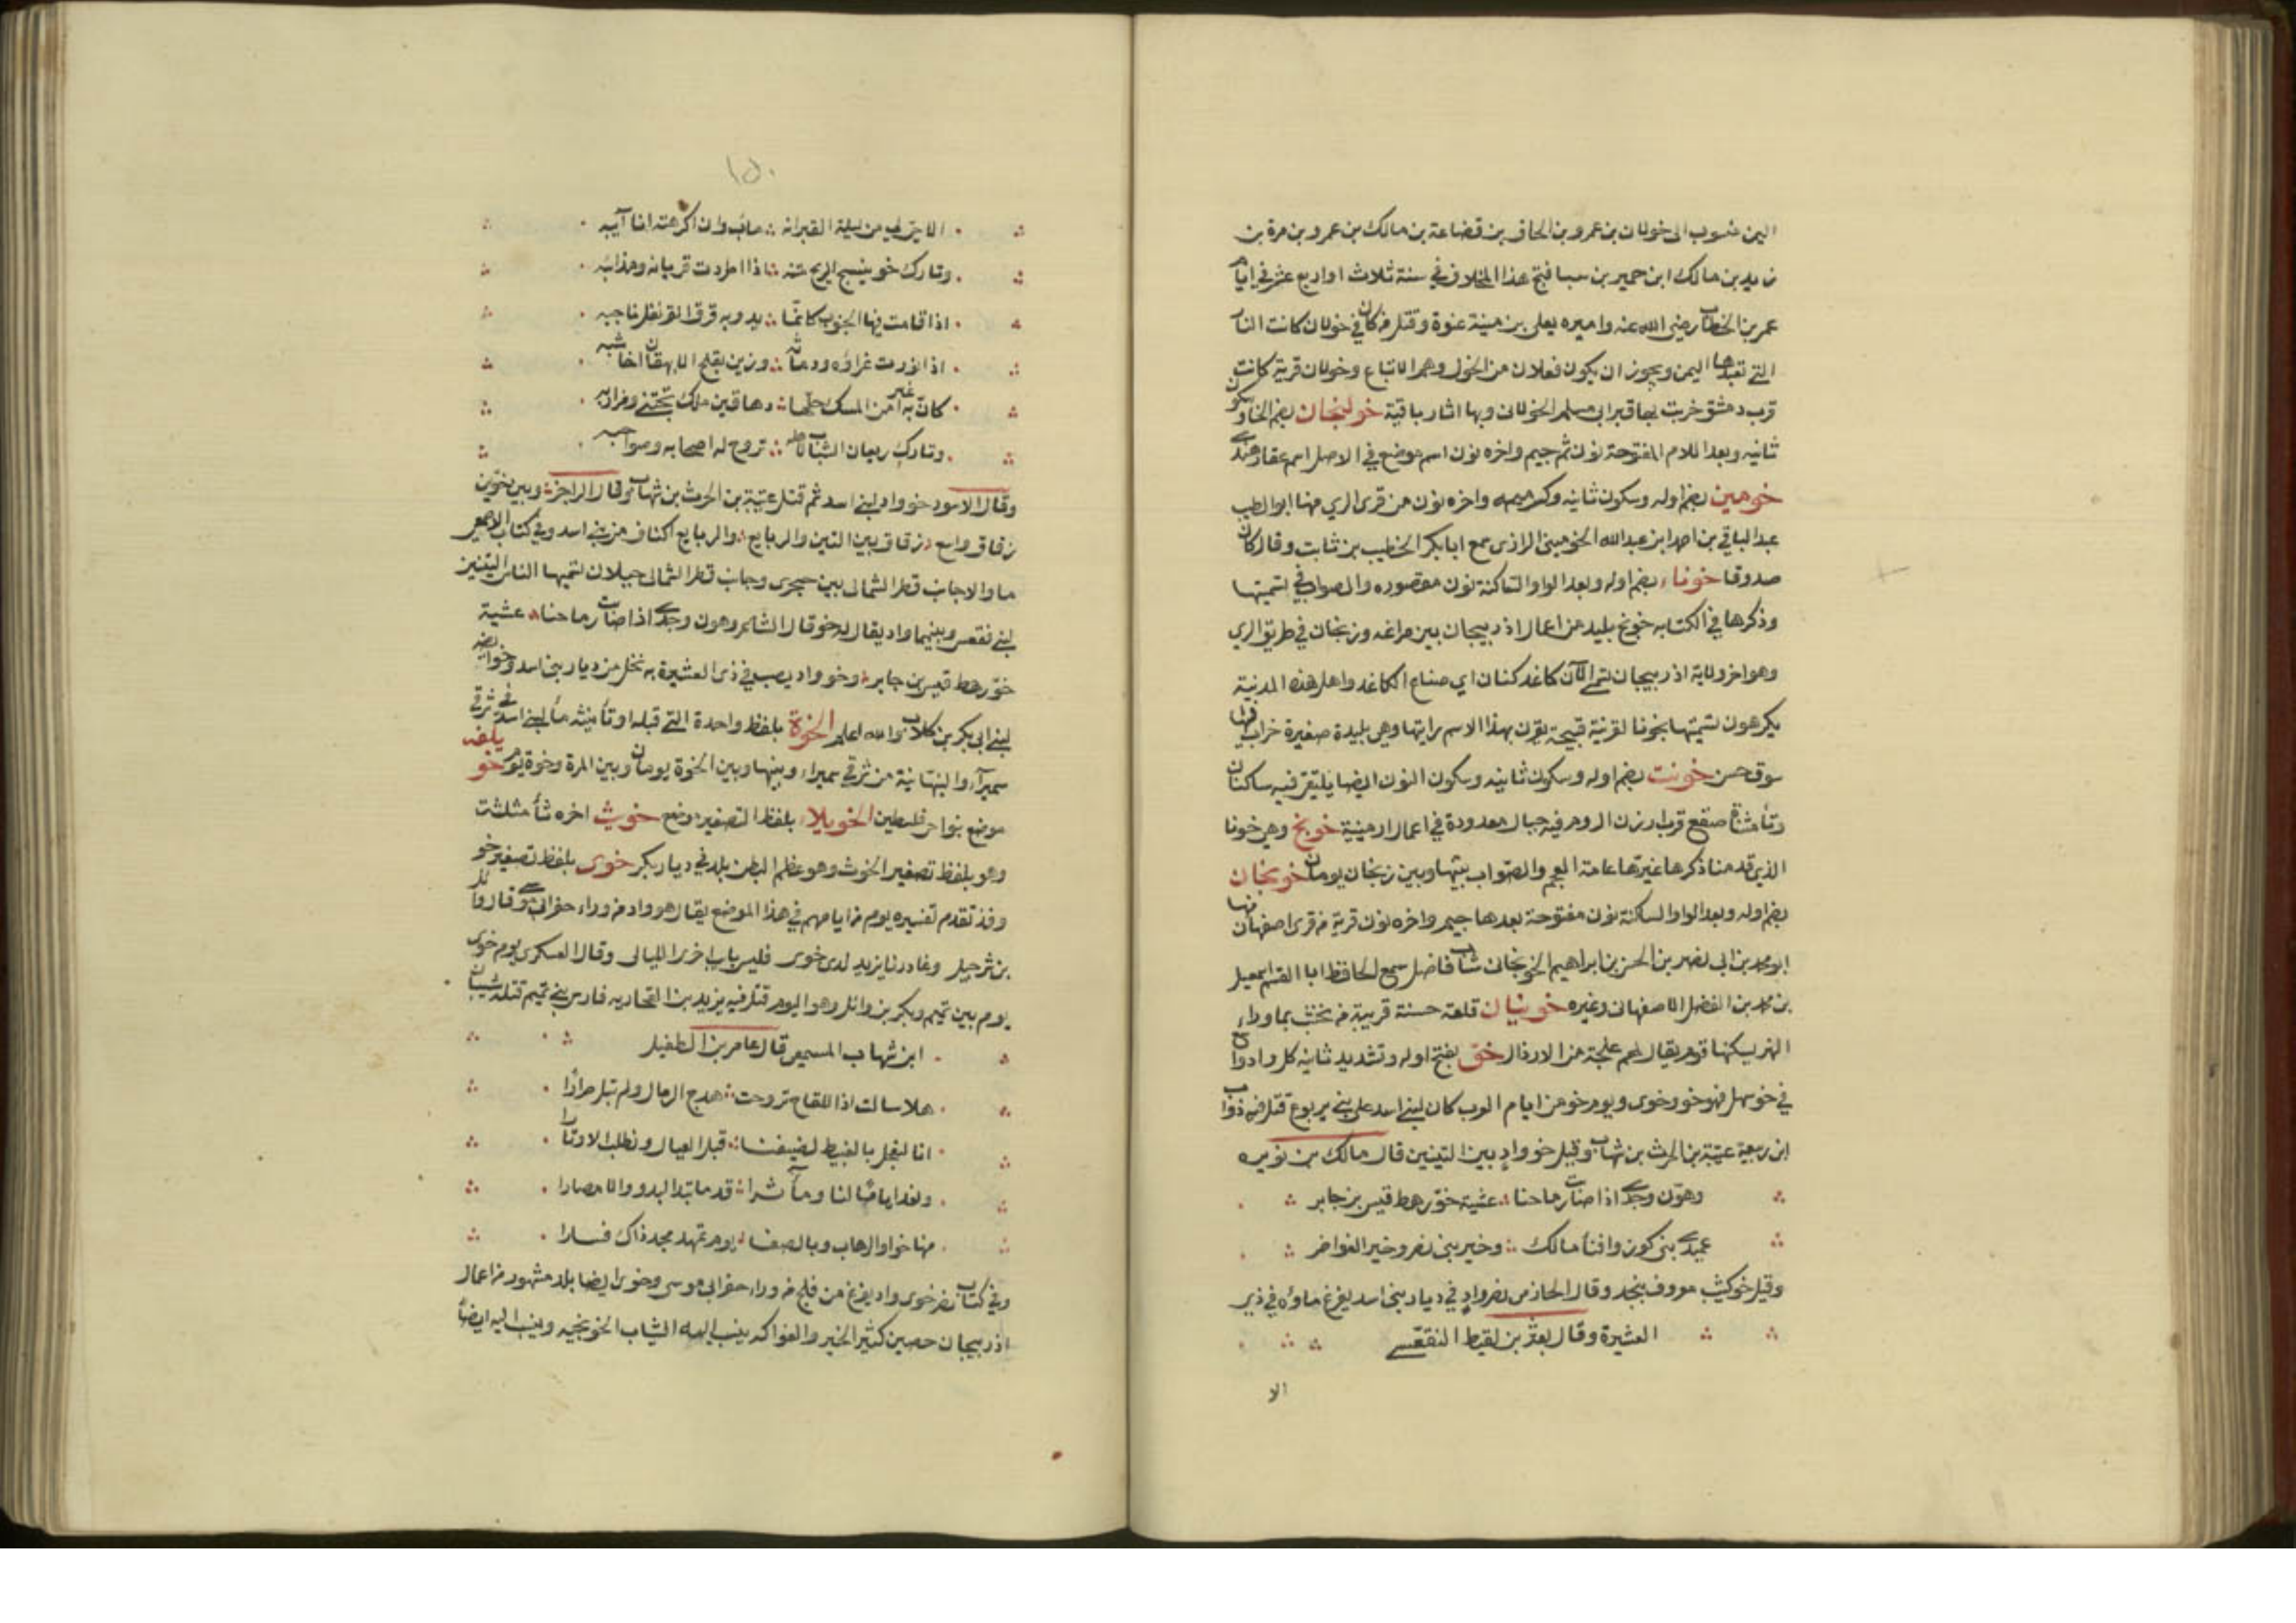 اليمن منسوب الى خولان بن عمرو بن الحاف بن قضاعة بن مالك بن عمرو بن مرة بن
زيد بن مالك ابن حمير بن سبا فتح هذا المخلاف في سنة ثلاث او اربع عشر في ايام
عمر بن الخطاب رضى الله عنه واميره يعلى بن منية عنوة وقتل من كان في خولان كانت النار
التي تعبدها اليمن ويجوز ان يكون فعلان من الخول وهم الاتباع وخولان قرية كانت
قرب دمشق خربت بها قبر ابى مسلم الخولانى وبها اثار باقية خولنجان بضم الخا وسكون
ثانيه وبعد اللام المفتوحة نون ثم جيم واخره نون اسم موضع في الاصل اسم عقار هندى
خومين بضم اوله وسكون ثانيه وكسر ميمه واخره نون من قرى الري منها ابو الطيب
عبد الباقي بن احمد ابن عبد الله الخومينى الرازى سمع ابا بكر الخطيب بن ثابت وقال كان
صدوقا خوناء بضم اوله وبعد الواو الساكنة نون مقصوره والصواب في تسميتها
وذكرها في الكتابه خونج بليد من اعمال اذربيجان بين مراغه وزنجان في طريق الري
وهو اخر ولاية اذربيجان تسمى الآن كاغد كنان اي صناع الكاغد واهل هذه المدنية
يكرهون تسميتها بخونا لقرينة قبيحة تقرن بهذا الاسم رايتها وهى بليدة صغيرة خراب فيها
سوق حسن خونت بضم اوله وسكون ثانيه وسكون النون ايضا يلتقى فيه ساكنان
وتأ مثناة صقع قرب ارزن الروم فيه جبال معدودة في اعمال ارمينية خونج وهى خونا
الذى قدمنا ذكرها غيرتها عامة العجم والصواب بينها وبين زنجان يومان خونجان
بضم اوله وبعد الواو الساكنة نون مفتوحة بعدها جيم واخره نون قرية من قرى اصفهان منها
ابو محمد بن ابى نصر بن الحسن بن ابراهيم الخونجانى شاب فاضل سمع الحافظ ابا القسم اسمعيل
بن محمد بن الفضل الاصفهانى وغيره خونيان قلعة حسنة قريبة من نخشب بما وراء
النهر يسكنها قوم يقال لهم علجة من الارذال خو بفتح اوله وتشديد ثانيه كل واد واسع
في خو سهل فهو خو وخوى ويوم خو من ايام العرب كان لبنى اسد على بنى يربوع قتل فيه ذواب
ابن ربيعة عتيبة بن الحرث بن شهاب وقيل خو واد بين التينين قال مالك بن نويره
وهون وجدى اذ اصابت رماحنا عشية خو رهط قيس بن جابر
عميدى بنى كوز وافنأ مالك وخير بنى نصر وخير الغواضر
وقيل خو كثيب معروف بنجد وقال الحازمى نصر واد في ديار بنى اسد يفرغ ماؤه في ذى
العشيرة وقال يعثر بن لقيط النقعسي
الا
١٥٠
وتارك خو ينسج الريح متنه اذا اطردت قريانه ومذانبه
اذا قامت فيها الجنوب كانما يدوبه قرق القرنفل ناجبه
وتارك ريعان الشباب تروح له اصحابه وصواحبه
وقال الاسود خو واد لبنى اسد ثم قتل عتيبة بن الحرث بن شهاب وقال الراجز وبين خوين
زقاق واسع زقاق بين التين والربايع والربايع اكناف من بنى اسد وفي كتاب الاصمعى
ما والا جانب قطن الشمالى بين حجرى وجانب قطن الشمالى جبلان تسميها الناس التينين
لبنى نقعس وبينهما واد يقال له خو قال الشاعر وهون وجدى اذا صابت رماحنا عشية
خو رهط قيس بن جابر وخو واد يصب في ذى العشيرة به نخل من ديار بنى اسد وخو ايضه
لبنى ابى بكر بن كلاب والله اعلم الخوة بلفظ واحدة التى قبله او تأنيثه مأ لبنى اسد في شرقي
سميرآ والنبهانية من شرقي سميراء وبينها وبين الخوة يومان وبين المرة وخوة يوم خو بلفه
موضع بنواحى فلسطين الخويلاء بلفظ التصغير موضع خويث اخره ثأ مثلثة
وهو بلفظ تصغير الخوث وهو عظم البطن بلد في ديار بكر خوى بلفظ تصغير خو
وقد تقدم تفسيره يوم من ايامهم في هذا الموضع يقال هو واد من وراء حفر ابى وقال وائل
بن شرحبيل وغادرنا يزيد لدى خوى فليس بايب اخرى الليالى وقال العسكرى يوم خوى
يوم بين تميم وبكر بن وائل وهو اليوم قتل فيه يزيد بن القحاديه فارس بنى تميم قتله شيبان
ابن شهاب المسمعى قال عامر بن الطفيل
هلا سالت اذا اللقاح تروحت هدج الرمال ولم تبل صرارا
انا لنعجل بالغبيط لضيفنا قبل العيال ونطلب الاوتارا
ونعد اياما لنا ومآثرا قدما تبد البدو والامصارا
منها خو والرهاب وبالصفا يوم تمهد مجد ذاك فسارا
وفي كتاب نصر خوى واد يفرغ من فلج من وراء حفر ابى موسى وخوى ايضا بلد مشهور من اعمال
اذربيجان حصين كثير الخير والفواكه ينسب اليه الثياب الخونجيه وينسب اليه ايضاً